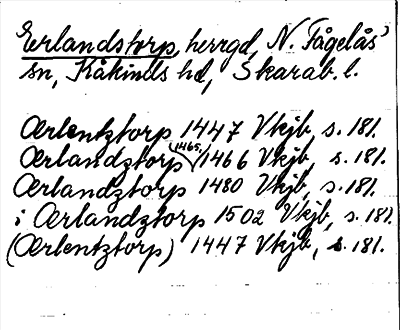 Erlandstorp, herrgd, N. Fågelås
sn, Kåkinds hd, Skarab. l.
Ærlentztorp 1447 Vkjb, s. 181.
Ærlandztorp (1465) 1466 Vkjb, s. 181.
Ærlandztorp 1480 Vkjb, s. 181.
i Ærlandztorp 1502 Vkjb, s. 181.
(Ærlentztorp) 1447 Vkjb, s. 181.